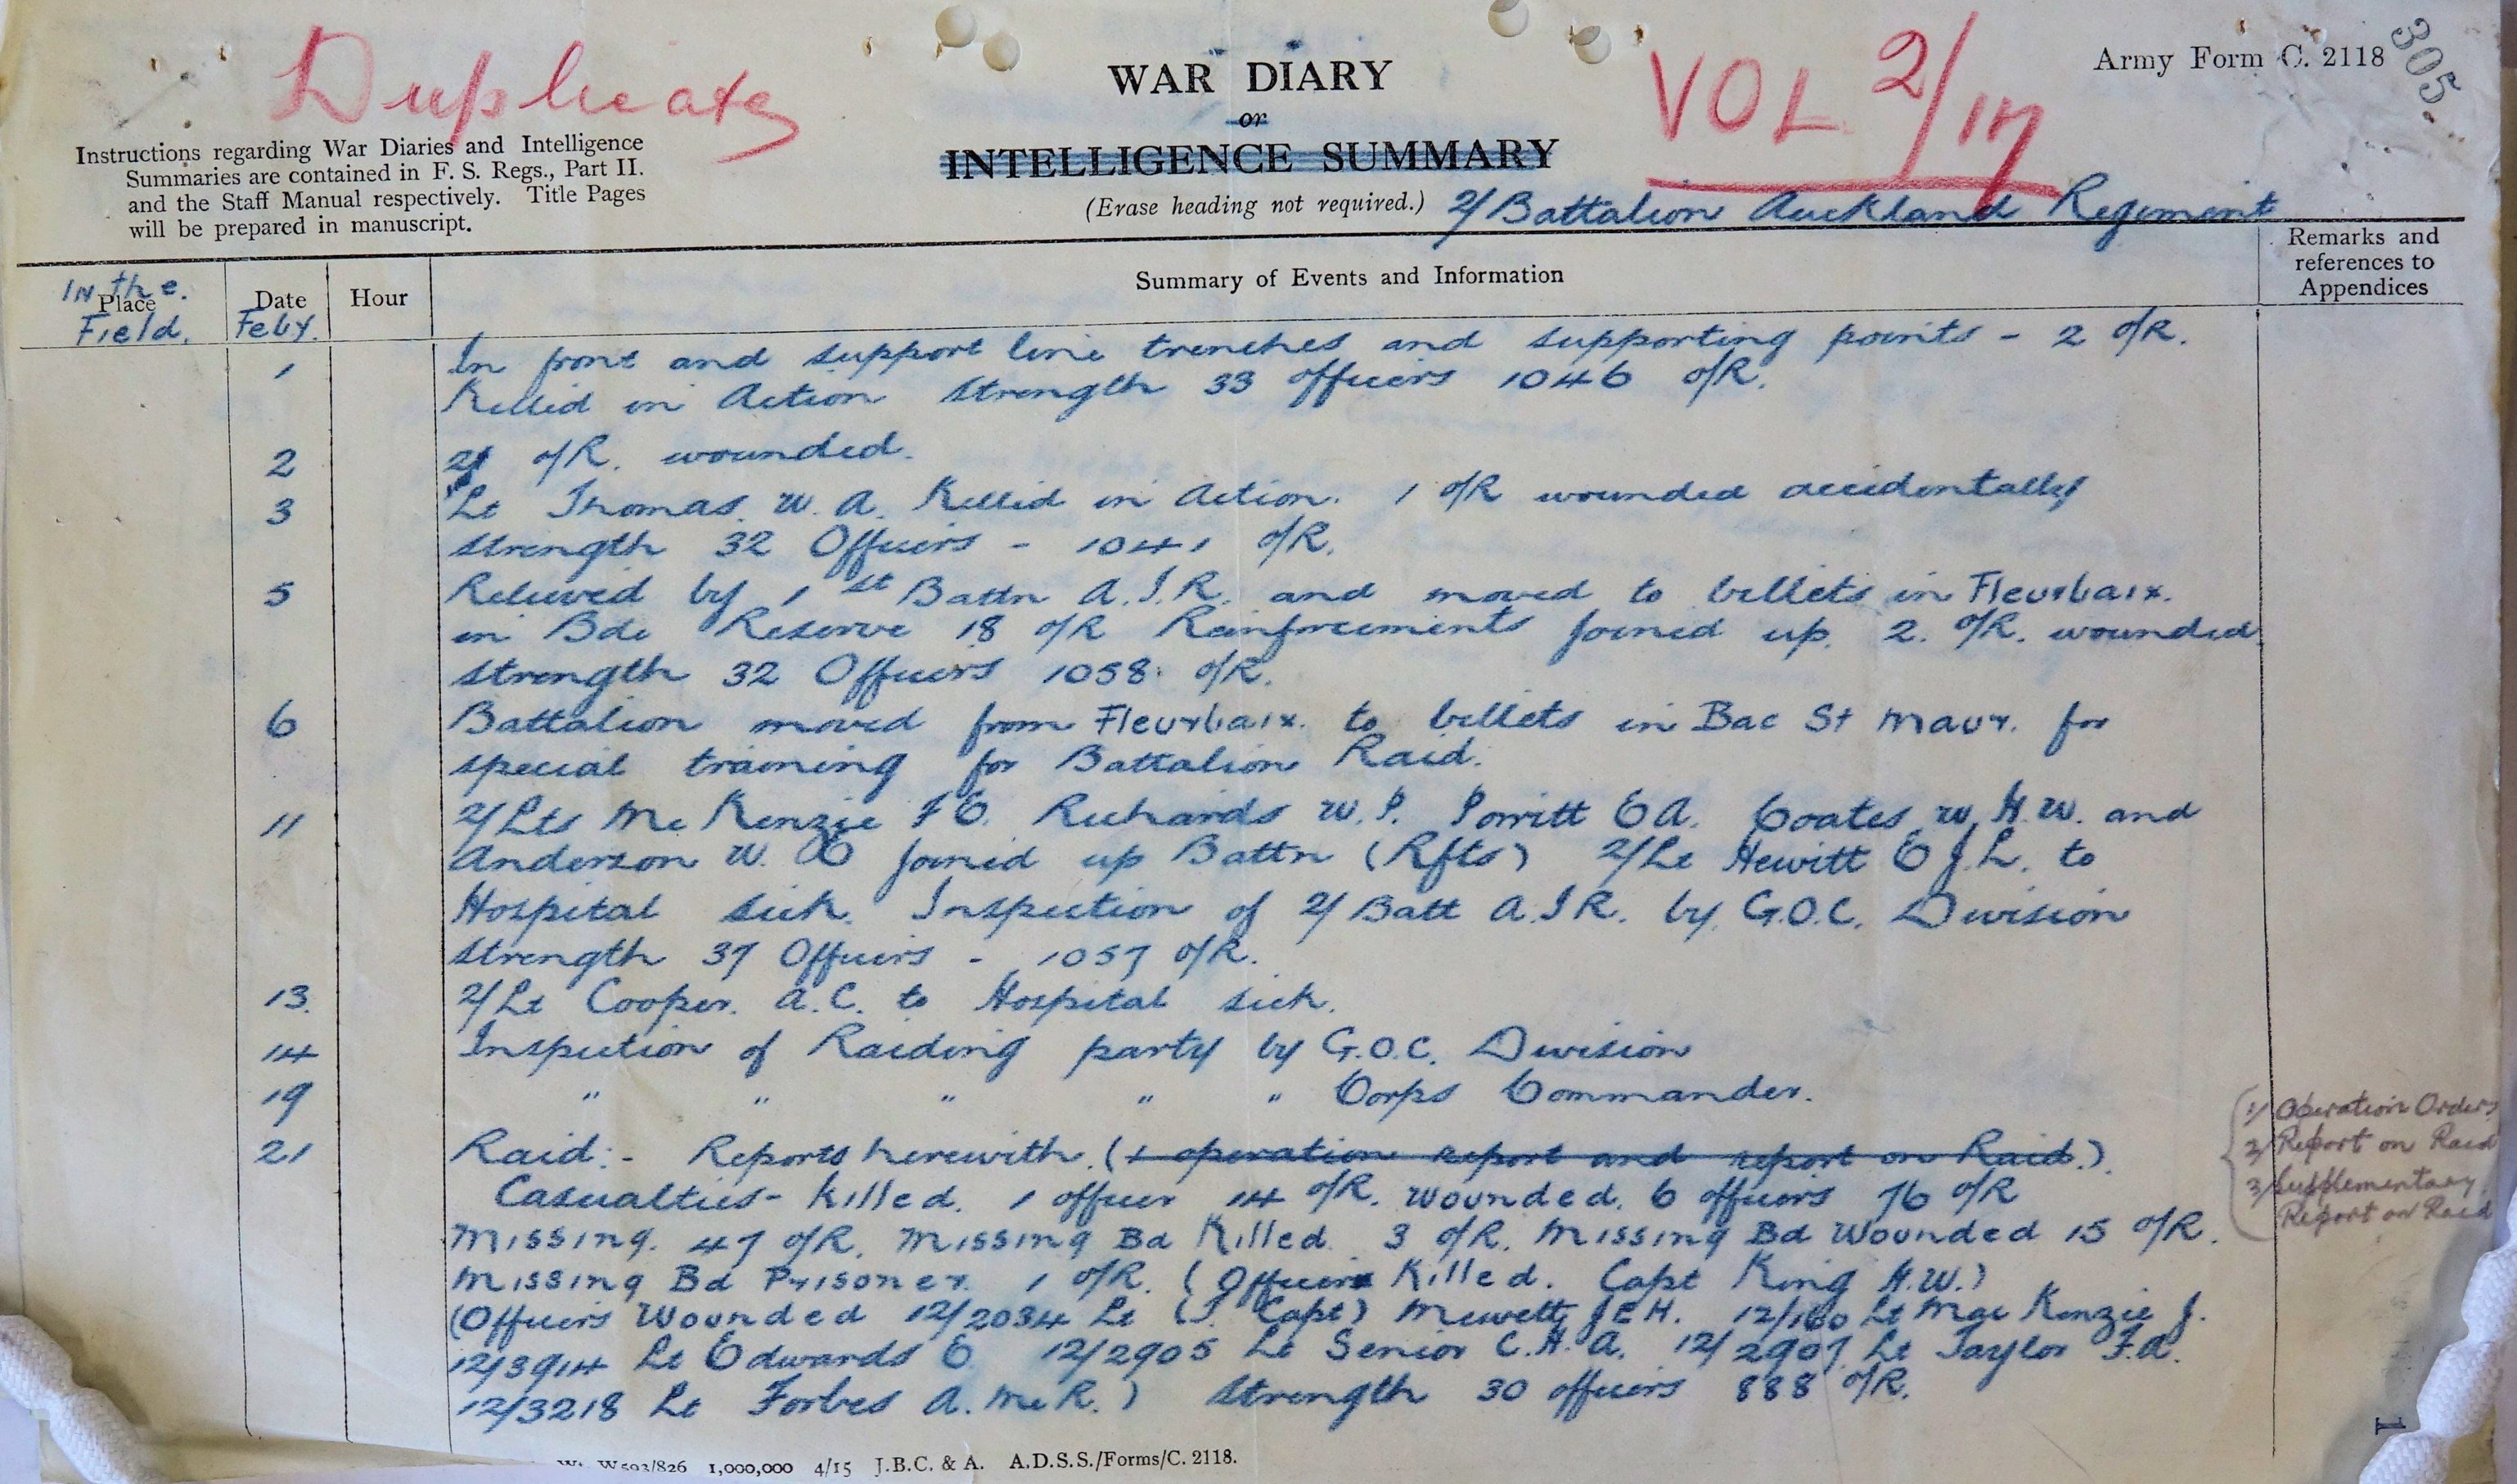 Duplicate
WAR DIARY
or
INTELLIGENCE SUMMARY
(Erase heading not required.)
VOL 2/17
Army Form C. 2118
305
Instructions regarding War Diaries and Intelligence
Summaries are contained in F. S. Regs., Part II.
and the Staff Manual respectively. Title Pages
will be prepared in manuscript.
2/Battalion Auckland Regiment
Place Date Hour Summary of Events and Information Remarks and
references to
Appendices
In the
Field. Feby.
1 In front and support line trenches and supporting points - 2 o/R.
Killed in Action Strength 33 officers 1046 o/R.
2 o/R. wounded.
3 Lt Thomas. W. A. Killed in Action. 1 o/R wounded accidentally
Strength 32 Officers - 1041 o/R.
5 Relieved by 1st Battn A.I.R. and moved to billets in Fleurbaix.
in Bde Reserve 18 o/R Reinforcements joined up. 2. o/R. wounded
Strength 32 Officers 1058. o/R.
6 Battalion moved from Fleurbaix. to billets in Bac St Maur. for
special training for Battalion Raid.
11 2/Lts McKenzie F E. Richards W. P. Porritt E A. Coates W. H. W. and
Anderson W. joined up Battn (Rfts) 2/Lt Hewitt E J. L. to
Hospital sick. Inspection of 2/Batt A.I R. by. G.O.C. Division
Strength 37 Officers - 1057 o/R.
13. 2/Lt Cooper. A.C. to Hospital sick.
14 Inspection of Raiding party by G.O.C. Division
19 " " " " " Corps Commander.
21 Raid:- Reports herewith. (1 operation report and report on Raid.).
Casualties- Killed. 1 officer 14 o/R. Wounded. 6 officers 76 o/R
Missing. 47 o/R. Missing Bd Killed 3 o/R. Missing Bd Wounded 15 o/R.
Missing Bd Prisoner. 1 o/R. (Officer Killed. Capt King H.W.)
(Officers Wounded 12/2034 Lt (T. Capt) Mewett J E H. 12/160 Lt MacKenzie J.
12/3914 Lt Edwards E. 12/2905 Lt Senior C.H.A. 12/2907 Lt Taylor F.A.
12/3218 Lt Forbes A. McR.) Strength 30 officers 888 o/R.
1/ Operation Orders
2/ Report on Raid
3/ Supplementary
Report on Raid
W593/826 1,000,000 4/15 J.B.C. & A. A.D.S.S./Forms/C. 2118.
1